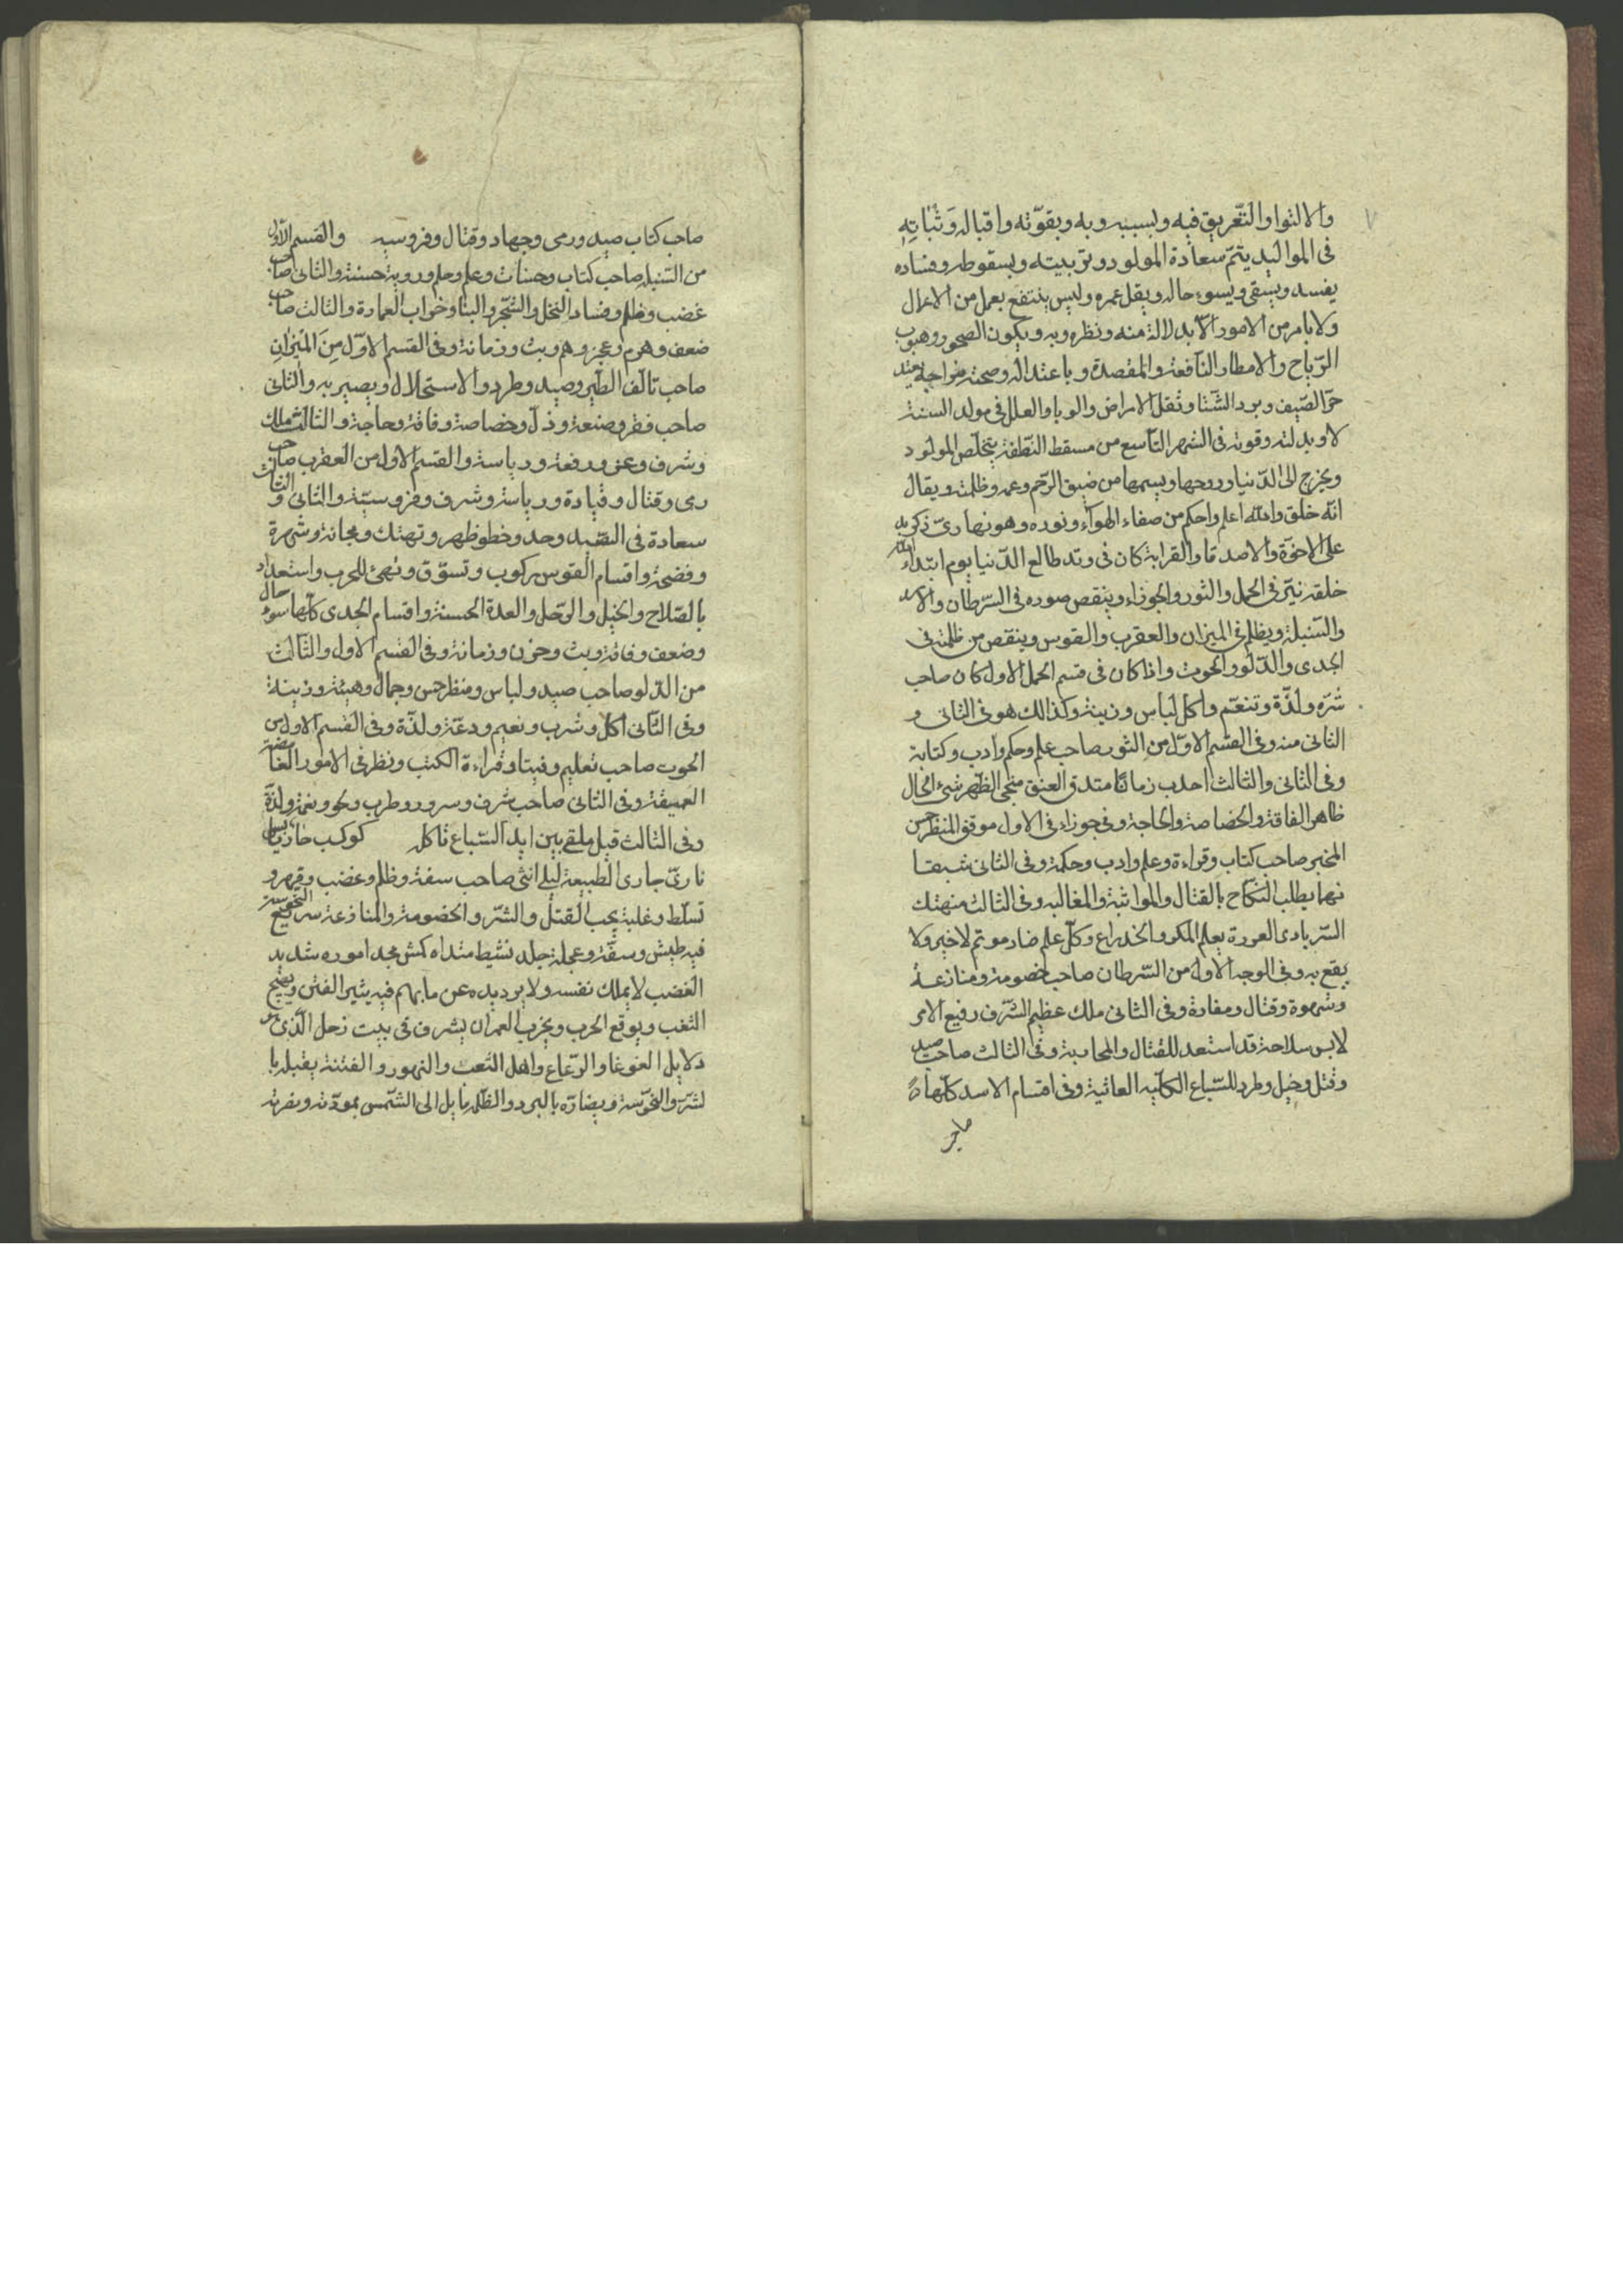 والالتوا والتغريق فيه وبسببه وبه وبقوّته واقباله وَثَباتِهِ
فى المواليد يتمّ سعادة المولود وتربيته وبسقوطه وفساده
يفسد ويشقى ويسوء حاله ويقل عمره وليس ينتفع بعمل من الاعمال
ولا بامر من الامور الّا بدلالة منه ونظره وبه ويكون الصحو وهبوب
الرّياح والامطار النّافعة والمقصدة وباعتداله وصحة مزاجه يعتد
حرّ الصّيف وبرد الشّتا وتقل الامراض والوبا والعلل فى مولد السنة
لا وبدلته وقوته فى الشهر التّاسع من مسقط النّطفة يتخلّص المولود
ويخرج الى الدّنيا وروحها ويسمها من ضيق الرّحم وغمه وظلمته ويقال
انّه خلق والله اعلم واحكم من صفاء الهواء ونوره وهو نهارىّ ذكر يد
على الاخوّة والاصدقا والقرابة كان فى وتد طالع الدّنيا يوم ابتداء الله
خلقه نيّر فى الحمل والثور والجوزاء وينقص صوره فى السّرطان والاسد
والسّنبلة ويظلم فى الميزان والعقرب والقوس وينقص من ظلمته فى
الجدى والدّلو والحوت واذا كان فى قسم الحمل الاول كان صاحب
شرّه ولذّة وتنعّم واكل لباس وزينة وكذالك هو فى الثانى و
الثانى منه وفى القسم الاوّل من الثور صاحب علم وحكم وادب وكتابة
وفى الثانى والثالث احدب زمانًا متدق العنق منحى الظّهر شئ الحال
ظاهر الفاقة والخصاصة والحاجة وفى جوزاء فى الاول موفق المنظر حسن
المخبر صاحب كتاب وقراءة وعلم وادب وحكمة وفى الثانى شبقا
نهما يطلب النكاح بالقتال والمواثبة والمغالبه وفى الثالث منهتك
السّر بادى العورة يعلم المكر والخدراع وكلّ علم ضار موتم لا خير ولا
يقع به وفى الوجه الاول من السّرطان صاحب خصومة ومنازعة
وشهوة وقتال ومفادة وفى الثانى ملك عظيم الشّرف رفيع الامر
لابس سلاحة قد استعد للقتال والمحاربة وفى الثالث صاحب صيد
وقتل وخيل وطرد للسّباع الكلبيه العاتية وفى اقسام الاسد كلّها
صاحب
صاحب كتاب صيد ورمى وجهاد وقتال وفروسيه والقسم الاوّل
من السّنبله صاحب كتاب وحسنات وعلم وحلم وروية حسنة والثانى صاحب
غضب وظلم وفساد النخل والشّجر والبنا وخراب العمارة والثالث صاحب
ضعف وهرم وعجز وهم وبث وزمانة وفى القسم الاوّل مِنَ المْيَزان
صاحب تالف الطّير وصيد وطرد والاستحلال وبصير به والثانى
صاحب فقر وصنعة وذلّ وخصاصة وفاقة وحاجة والثالث ملك
وشرف وعز ورفعة ورياسة والقسم الاول من العقرب صاحب
رمى وقتال وقيادة ورياسة وشرف وفروسيّة والثانى و الثالث
سعادة فى التقييد وحد وخطوط ظهر وتهتك ومجانة وشهرة
وفضحة واقسام القوس ركوب وتسوّق وتهئ للحرب واستعداد
بالصّلاح والخيل والرّحل والعدة الحسنة واقسام الجدى كلّها سوء حال
وضعف وفاقة وبث وحزن وزمانة وفى القسم الاول والثّالث
من الدّلو صاحب صيد ولباس ومنظر حسن وجمال وهيئة وزينة
وفى الثّانى اكل وشرب ونعيم ودعّة ولذّة وفى القسم الاول من
الحوت صاحب تعليم وفتيا وقراءة الكتب ونظر فى الامور الغامضة
العميقة وفى الثانى صاحب شرف وسرور وطرب ولهو ونغمة ولذّة
وفى الثالث قيل ملقى بين ايد السّباع تاكله كوكب حار يابس
نارىّ جارى الطبيعة ليلى انثى صاحب سفة وظلم وغضب وقهر و
تسلّط وغلبة يحب القتل والشّر والخصومة والمنازعة سريع التحوسة
فيه طيش وسفّة وعجلة جلد نشيط منداه كمش مجد اموره شديد
الغضب لا يملك نفسه ولا يرد يده عن ما يهم فيه يثير الفتن ويهيج
الشغب ويوقع الحرب ويخرب العمران يشرف فى بيت زحل الّذى هو
دلايل الغوغا والرّعاع واهل التعب والتهور والفتنة يقبله با
لشرّ والنحوسة ويضارّه بالبرد والظّلمة يايل الى الشّمس بمودّته ونفرته